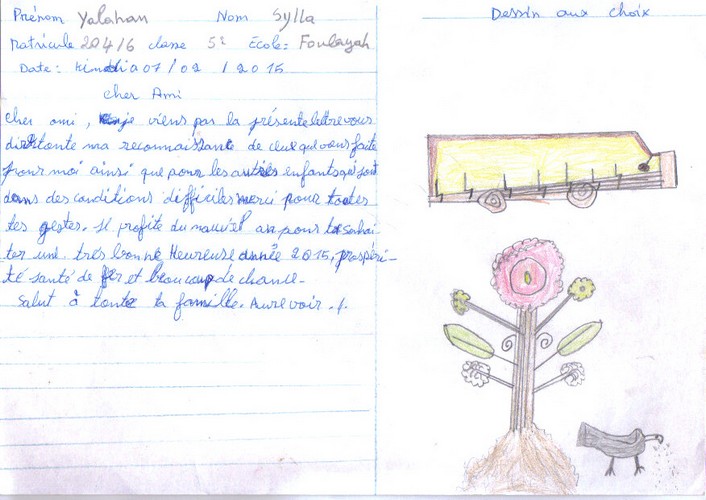 Prénom Yalahan Nom Sylla
Matricule 204/6 classe 5e École: Foulayah
Date: Kindia 07/02/2015
cher Ami
cher ami, je viens par la présente lettre vous
dire toute ma reconnaissant de ceux qui vous faite
pour moi ainsi que pour les autres enfants qui sont
dans des conditions difficiles merci pour toutes
tes gestes. Il profite du nouvel an pour te souhai-
ter une très bonne Heureuse année 2015, prospéri-
té santé de fer et beaucoup de chance.
Salut à toute ta famille. Aurevoir ./.
Dessin aux choix